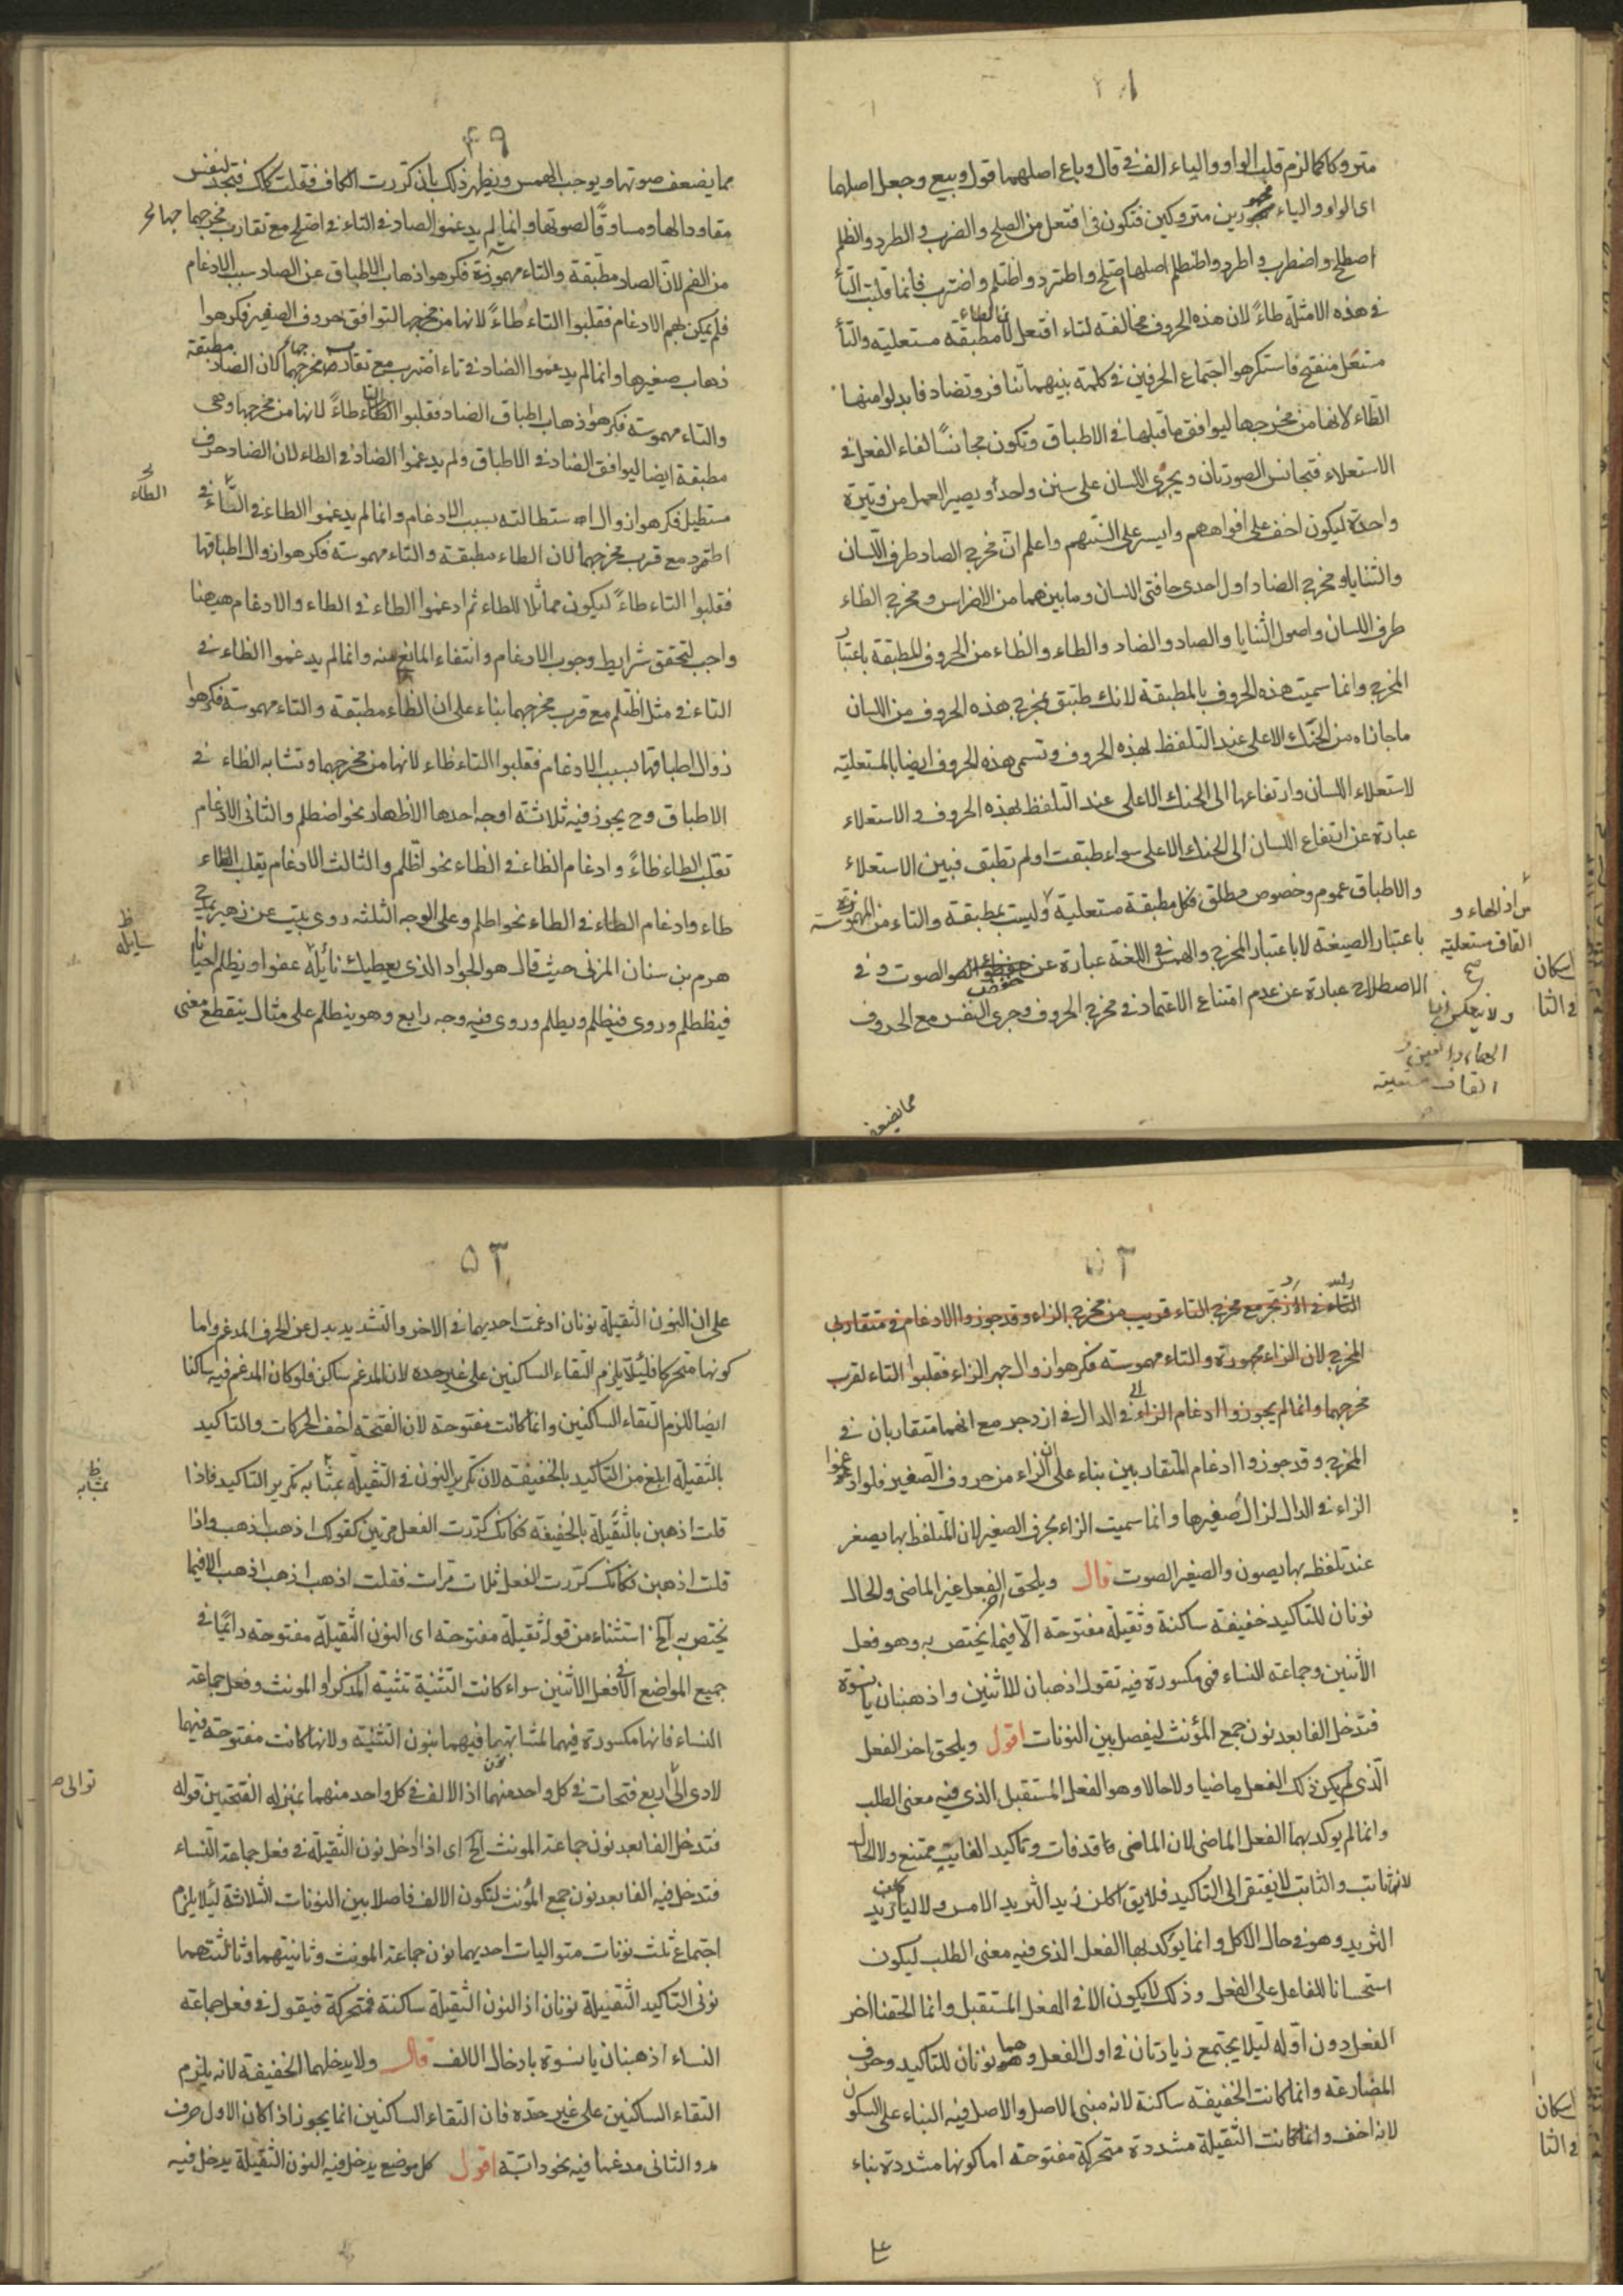 متروكا كما لزم قلب الواو والياء الف فى قال وباع اصلهما قول وبيع وجعل اصلهما
اى الواو والياء مهجورين متروكين فتكون فى افتعل من الصلح والضرب والطرد والظلم
اصطلح واضطرب واطرد واظطلم اصلها اصتلح واطترد واظتلم واضترب فانما قلبت التاء
فى هذه الامثلة طاءً لان هذه الحروف مخالفة لتاء افتعل لان الطاء مطبقة مستعلية والتاء
منفتح فاستكرهوا اجتماع الحرفين فى كلمة بينهما تنافر وتضاد فابدلوا منها
الطاء لانها من مخرجها ليوافق ما قبلها فى الاطباق وتكون مجانسًا لفاء الفعل فى
الاستعلاء فتجانس الصوتان ويجرى اللسان على سنن واحد ويصير العمل من وتيرة
واحدة ليكون اخف على افواههم وايسر على السنتهم واعلم ان مخرج الصاد طرف اللسان
والثنايا ومخرج الضاد اول احدى حافتى اللسان وما بينهما من الاضراس ومخرج الطاء
طرف اللسان واصول الثنايا والصاد والضاد والطاء والظاء من الحروف المطبقة باعتبار
المخرج وانما سميت هذه الحروف بالمطبقة لانك طبتق مخرج هذه الحروف من اللسان
ما حاذاه من الحنك الاعلى عند التلفظ بهذه الحروف وتسمى هذه الحروف ايضا بالمستعلية
لاستعلاء اللسان وارتفاعها الى الحنك الاعلى عند التلفظ بهذه الحروف والاستعلاء
عبارة عن ارتفاع اللسان الى الحنك الاعلى سواء طبقت او لم تطبق فبين الاستعلاء
والاطباق عموم وخصوص مطلق فكل مطبقة مستعلية وليست بمطبقة والتاء من المهموسة
باعتبار الصيغة لا باعتبار المخرج والهمس فى اللغة عبارة عن خفض الصوت وفى
الاصطلاح عبارة عن عدم امتناع الاعتماد فى مخرج الحروف وجرى النفس مع الحروف
القاف مستعلية
صح
القاف مستعلية
مما يضعف
٤٩
مما يضعف صوتها ويوجب الهمس ويظهر ذلك بان كررت الكاف فقلت ككك فتجد لنفس
مقاودا لها ومساوقًا لصوتها وانما لم يدغموا الصاد فى التاء فى اصتلح مع تقارب مخرجهما
من الفم لان الصاد مطبقة والتاء مهموسة فكرهوا ذهاب الاطباق عن الصاد سبب الادغام
فلم يمكن لهم الادغام فقلبوا التاء طاءً لانها من مخرجها لتوافق حروف الصفير فكرهوا
ذهاب صفيرها وانما لم يدغموا الضاد فى تاء اضترب مع تقارب مخرجهما لان الضاد مطبقة
والتاء مهموسة فكرهوا ذهاب اطباق الضاد فقلبوا التاء طاءً لانها من مخرجها وهى
مطبقة ايضا ليوافق الضاد فى الاطباق ولم يدغموا الضاد فى الطاء لان الضاد حرف
مستطيل فكرهوا زوال الاستطالته بسبب الادغام وانما لم يدغموا الطاء فى التاء فى
اطترد مع قرب مخرجهما لان الطاء مطبقة والتاء مهموسة فكرهوا زوال اطباقها
فقلبوا التاء طاءً ليكون مماثلا للطاء ثم ادغموا الطاء فى الطاء والادغام ههنا
واجب لتحقق شرايط وجوب الادغام وانتفاء المانع عنه وانما لم يدغموا الظاء فى
التاء فى مثل اظتلم مع قرب مخرجهما بناء على ان الظاء مطبقة والتاء مهموسة فكرهوا
زوال اطباقها بسبب الادغام فقلبوا التاء طاء لانها من مخرجهما وتشابه الظاء فى
الاطباق وح يجوز فيه ثلاثة اوجه احدها الاظهار نحو اضطلم والثانى الادغام
تقلب الطاء ظاءً وادغام الظاء فى الظاء نحو اظلم والثالث الادغام بقلب الظاء
طاء وادغام الطاء فى الطاء نحو اطلم وعلى الوجه الثلثه روى بيت عن زهير يمدح
هرم بن سنان المزنى حيث قال هو الجواد الذى يعطيك نائله عفوا ويظلم احيانا
فيظطلم وروى فيظلم ويطلم وروى فيه وجه رابع وهو ينظلم على مثال ينقطع معنى
الطاء
ظ
سايله
٥٢
التاء فى ازتجر مع مخرج التاء قريب من مخرج الزاء وقد جوزوا الادغام فى متقاربى
المخرج لان الزاء مجهورة والتاء مهموسة فكرهوا زوال جهر الزاء فقلبوا التاء لقرب
مخرجهما وانما لم يجوزوا ادغام الزاء فى الدال فى ازدجر مع انهما متقاربان فى
المخرج وقد جوزوا ادغام المتقاربين بناء على ان الزاء من حروف الصفير فلو ادغموا
الزاء فى الدال لزال صفيرها وانما سميت الزاء بحرف الصفير لان المتلفظ بها يصفر
عند تلفظه بها يصون والصفير الصوت قال ويلحق الفعل غير الماضى والحال
نونان للتاكيد خفيفة ساكنة وثقيلة مفتوحة الا فيما يختص به وهو فعل
الاثنين وجماعة النساء فهى مكسورة فيه تقول اذهبان للاثنين واذهبنان يا نسوة
فتدخل الفا بعد نون جمع المؤنث ليفصل بين النونات اقول ويلحق اخر الفعل
الذى لم يكن ذلك الفعل ماضيا ولا حالا وهو الفعل المستقبل الذى فيه معنى الطلب
وانما لم يوكد بهما الفعل الماضى لان الماضى ما قد فات وتاكيد الغايب ممتنع ولا الحال
لانه ثابت والثابت لا يفتقر الى التاكيد فلا يق اكلن زيد الثريد الامس ولا لياكلن زيد
الثريد وهو فى حال الاكل وانما يؤكد بها الفعل الذى فيه معنى الطلب ليكون
استحسانا للفاعل على الفعل وذلك لا يكون الا فى الفعل المستقبل وانما الحقنا اخر
الفعل دون اوله ليلا يجتمع زيادتان فى اول الفعل وهما نونان للتاكيد وحرف
المضارعة وانما كانت الخفيفة ساكنة لانه مبنى الاصل والاصل فيه البناء على السكون
لانه اخف وانما كانت الثقيلة مشددة متحركة مفتوحة اما كونها مشددة بناء
على
٥٣
على ان النون الثقيلة نونان ادغمت احديهما فى الاخر والتشديد يدل عن الحرف المدغم واما
كونها متحركا فليلا يلزم التقاء الساكنين على غير حده لان المدغم ساكن فلو كان المدغم فيه ساكنا
ايضا للزم التقاء الساكنين وانما كانت مفتوحة لان الفتحة اخف الحركات والتاكيد
بالثقيلة ابلغ من التاكيد بالخفيفة لان تكرير النون فى الثقيلة بمثابه تكرير التاكيد فاذا
قلت اذهبن بالثقيلة بالخفيفة فكانك كررت الفعل مرتين كقولك اذهب اذهب واذا
قلت اذهبن فكانك كررت الفعل ثلاث مرات فقلت اذهب اذهب اذهب الا فيما
يختص به الخ استثناء من قوله ثقيلة مفتوحة اى النون الثقيلة مفتوحة دائما فى
جميع المواضع الا فى فعل الاثنين سواء كانت التثنية تثنية المذكر او المونث وفعل جماعة
النساء فانها مكسورة فيهما لمشابهتها فيهما بنون التثنية ولانها كانت مفتوحة فيهما
لادى الى اربع فتحات فى كل واحد منهما اذ الالف فى كل واحد منهما بمنزله الفتحتين قوله
فتدخل الفا بعد نون جماعة المونث الخ اى اذا ادخل نون الثقيلة فى فعل جماعة النساء
فتدخل فيه الفا بعد نون جمع المؤنث لتكون الالف فاصلا بين النونات الثلاثة ليلا يلزم
اجتماع ثلث نونات متواليات احديهما نون جماعة المونث وثانيتهما وثالثتهما
نونى التاكيد الثقيلة نونان اذ النون الثقيلة ساكنة فمتحركة فيقول فى فعل جماعة
النساء اذهبنان يا نسوة بادخال الالف قال ولا يدخلهما الخفيفة لانه يلزم
التقاء الساكنين على غير حده فان التقاء الساكنين انما يجوز اذا كان الاول حرف
مد والثانى مدغما فيه نحو دابة اقول كل موضع يدخل فيه النون الثقيلة يدخل فيه
ظ
بمثابه
توالى